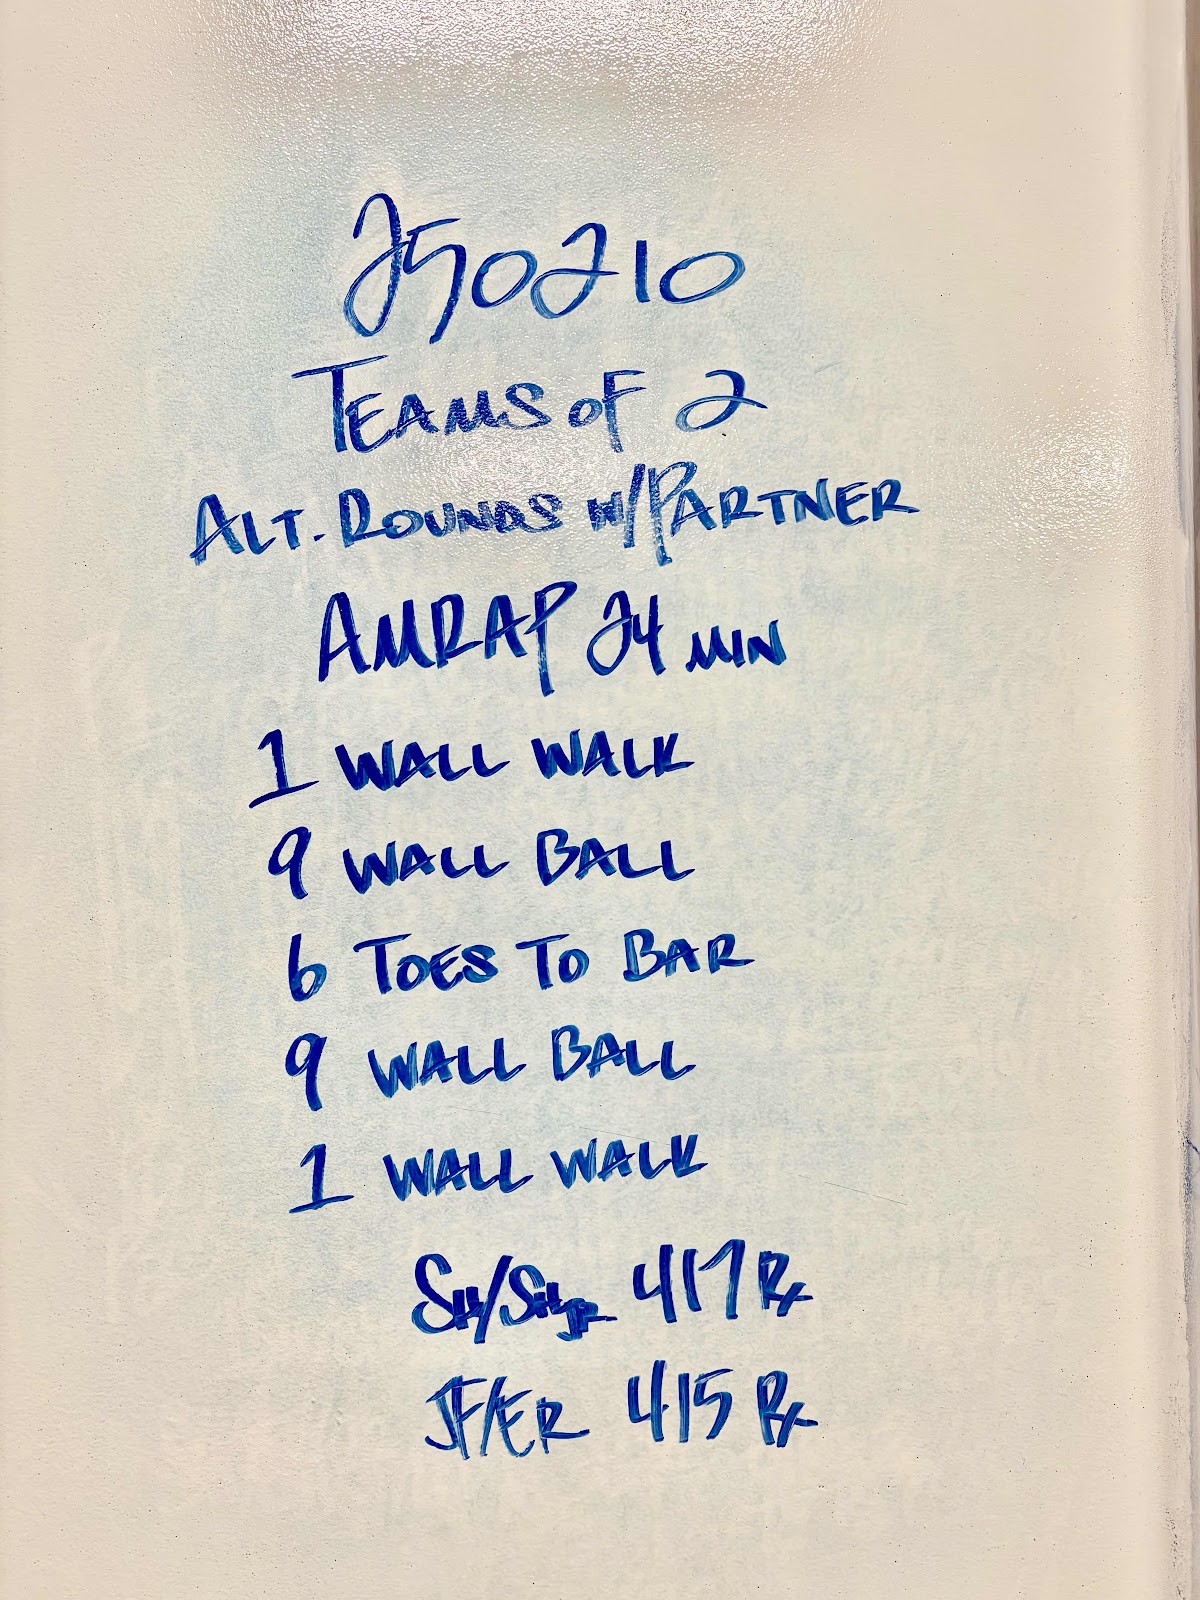 250210
TEAMS OF 2
ALT. ROUNDS W/PARTNER
AMRAP 24 MIN
1 WALL WALK
9 WALL BALL
6 TOES TO BAR
9 WALL BALL
1 WALL WALK
SH/SHJR 417 Rx
JF/ER 415 Rx